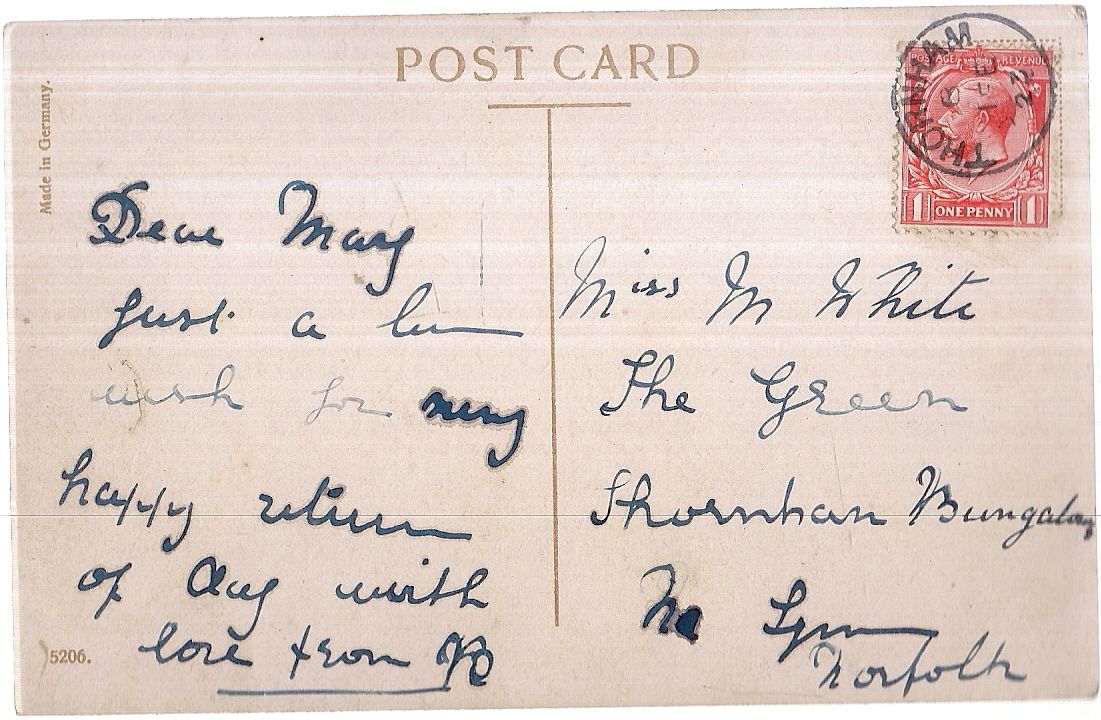 POST CARD
Made in Germany.
POSTAGE REVENUE
THORNHAM
FE
22
1 ONE PENNY 1
Dear Mary
Just a line
wish for many
happy return
of day with
love from
Miss M White
The Green
Thornham Bungalow
Lynn
Norfolk
5206.